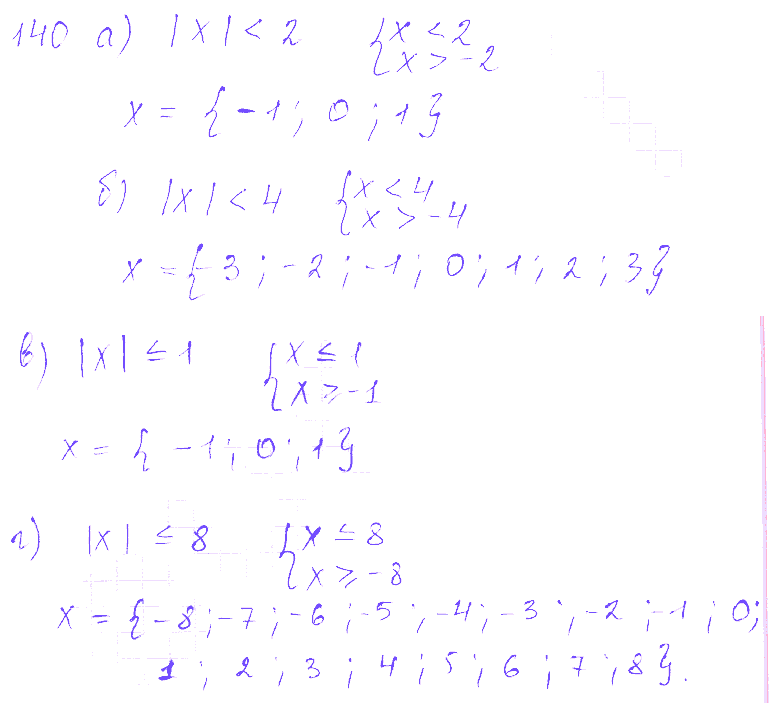 140 а) |x| < 2 { x < 2
x > -2
x = { -1 ; 0 ; 1 }
б) |x| < 4 { x < 4
x > -4
x = { -3 ; -2 ; -1 ; 0 ; 1 ; 2 ; 3 }
в) |x| ≤ 1 { x ≤ 1
x ≥ -1
x = { -1 ; 0 ; 1 }
г) |x| ≤ 8 { x ≤ 8
x ≥ -8
x = { -8 ; -7 ; -6 ; -5 ; -4 ; -3 ; -2 ; -1 ; 0 ;
1 ; 2 ; 3 ; 4 ; 5 ; 6 ; 7 ; 8 }.